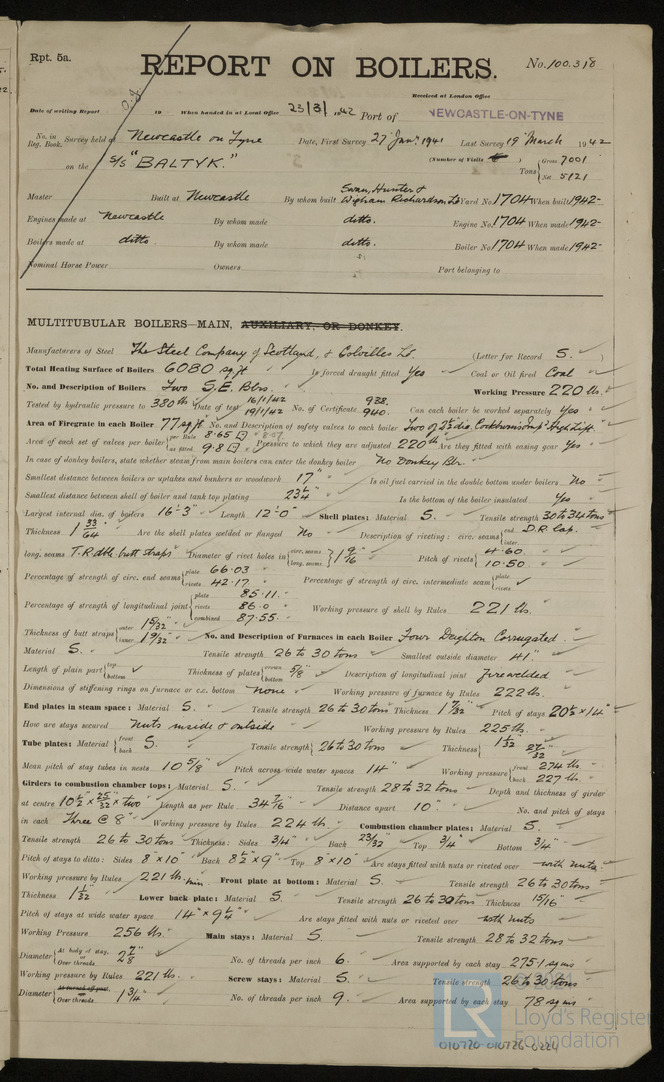 Rpt. 5a.
REPORT ON BOILERS.
No. 100.318
Received at London Office
Date of writing Report 19 When handed in at Local Office 23/3/1942 Port of NEWCASTLE-ON-TYNE
No. in Reg. Book. Survey held at Newcastle on Tyne Date, First Survey 27 Jany. 1941 Last Survey 19 March 1942
on the S/S "BALTYK." (Number of Visits ) Tons Gross 7001 Net 5121
Master Built at Newcastle By whom built Swan, Hunter & Wigham Richardson Ld Yard No. 1704 When built 1942
Engines made at Newcastle By whom made ditto. Engine No. 1704 When made 1942
Boilers made at ditto By whom made ditto. Boiler No. 1704 When made 1942
Nominal Horse Power Owners Port belonging to
MULTITUBULAR BOILERS—MAIN, AUXILIARY, OR DONKEY.
Manufacturers of Steel The Steel Company of Scotland, & Colvilles Ld. (Letter for Record S. )
Total Heating Surface of Boilers 6080 sq ft Is forced draught fitted Yes Coal or Oil fired Coal
No. and Description of Boilers Two S.E. Blrs. Working Pressure 220 lbs.
Tested by hydraulic pressure to 380 lbs Date of test 16/1/42 19/1/42 No. of Certificate 938. 940. Can each boiler be worked separately Yes
Area of Firegrate in each Boiler 77 sq ft No. and Description of safety valves to each boiler Two of 2½ dia. Cockburns Imp. High Lift.
Area of each set of valves per boiler per Rule 8.65 as fitted 9.8 Pressure to which they are adjusted 220 lbs Are they fitted with easing gear Yes
In case of donkey boilers, state whether steam from main boilers can enter the donkey boiler No Donkey Blr.
Smallest distance between boilers or uptakes and bunkers or woodwork 17" Is oil fuel carried in the double bottom under boilers No
Smallest distance between shell of boiler and tank top plating 23¼" Is the bottom of the boiler insulated Yes
Largest internal dia. of boilers 16'-3" Length 12'-0" Shell plates: Material S. Tensile strength 30 to 34 tons
Thickness 1 33/64 Are the shell plates welded or flanged No Description of riveting: circ. seams end D.R. lap. inter.
long. seams T.R. dble. butt straps Diameter of rivet holes in circ. seams long. seams 1 9/16 Pitch of rivets 4.60 10.50
Percentage of strength of circ. end seams plate 66.03 rivets 42.17 Percentage of strength of circ. intermediate seam plate rivets
Percentage of strength of longitudinal joint plate 85.11 rivets 86.0 combined 87.55 Working pressure of shell by Rules 221 lbs.
Thickness of butt straps outer 1 5/32" inner 1 9/32" No. and Description of Furnaces in each Boiler Four Deighton Corrugated.
Material S. Tensile strength 26 to 30 tons Smallest outside diameter 41"
Length of plain part top bottom Thickness of plates crown bottom 5/8" Description of longitudinal joint fire welded
Dimensions of stiffening rings on furnace or c.c. bottom None Working pressure of furnace by Rules 222 lbs.
End plates in steam space: Material S. Tensile strength 26 to 30 tons Thickness 1 7/32" Pitch of stays 20½ × 14"
How are stays secured Nuts inside & outside Working pressure by Rules 225 lbs.
Tube plates: Material front back S. Tensile strength 26 to 30 tons Thickness 1 1/32" 27/32"
Mean pitch of stay tubes in nests 10 5/8" Pitch across wide water spaces 14" Working pressure front 274 lbs back 227 lbs
Girders to combustion chamber tops: Material S. Tensile strength 28 to 32 tons Depth and thickness of girder
at centre 10½" × 25/32" × two Length as per Rule 34 7/16" Distance apart 10" No. and pitch of stays
in each Three @ 8" Working pressure by Rules 224 lbs Combustion chamber plates: Material S.
Tensile strength 26 to 30 tons Thickness: Sides 3/4" Back 23/32" Top 3/4" Bottom 3/4"
Pitch of stays to ditto: Sides 8" × 10" Back 8½ × 9" Top 8" × 10" Are stays fitted with nuts or riveted over with nuts
Working pressure by Rules 221 lbs min Front plate at bottom: Material S. Tensile strength 26 to 30 tons
Thickness 1 1/32" Lower back plate: Material S. Tensile strength 26 to 30 tons Thickness 15/16"
Pitch of stays at wide water space 14" × 9¼" Are stays fitted with nuts or riveted over with nuts
Working Pressure 256 lbs Main stays: Material S. Tensile strength 28 to 32 tons
Diameter At body of stay, or Over threads 2 7/8" No. of threads per inch 6. Area supported by each stay 275.1 sq ins
Working pressure by Rules 221 lbs. Screw stays: Material S. Tensile strength 26 to 30 tons
Diameter At turned off part, or Over threads 1 3/4" No. of threads per inch 9. Area supported by each stay 78 sq ins
© 2021
LR
Lloyd's Register
Foundation
010720-010726-0224